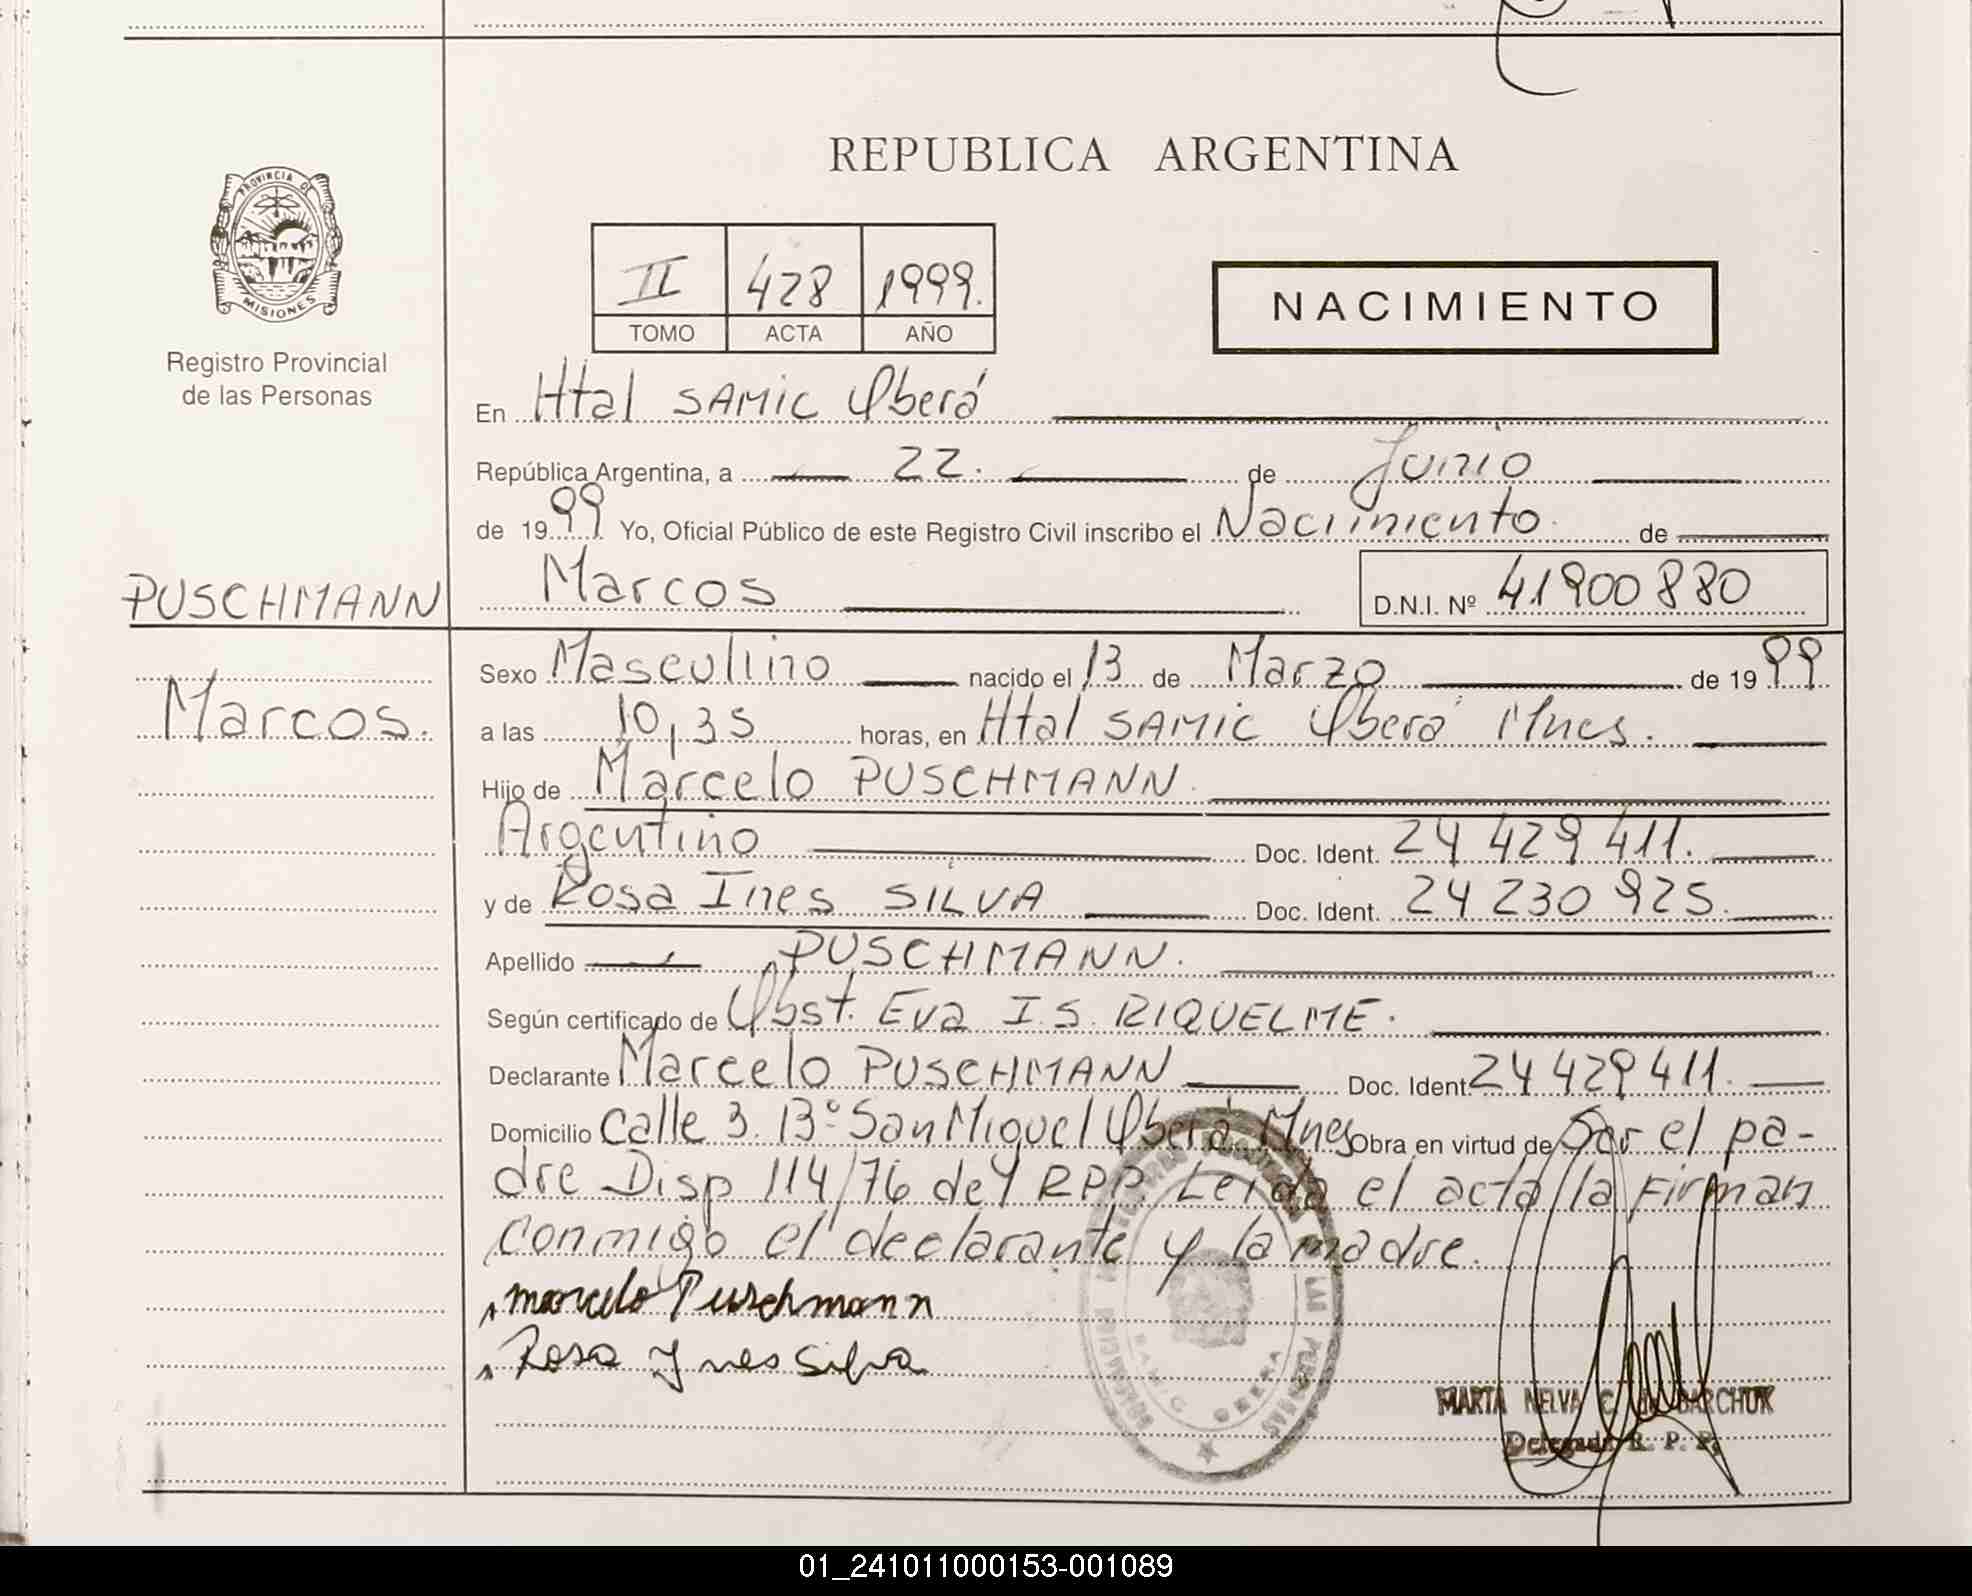 REPUBLICA ARGENTINA
PROVINCIA DE
MISIONES
Registro Provincial
de las Personas
II 428 1999.
TOMO ACTA AÑO
NACIMIENTO
En Htal SAMIC Oberá
República Argentina, a 22. de Junio
de 1999 Yo, Oficial Público de este Registro Civil inscribo el Nacimiento de
PUSCHMANN
Marcos D.N.I. Nº 41900880
Marcos.
Sexo Masculino nacido el 13 de Marzo de 1999
a las 10,35 horas, en Htal SAMIC Oberá Mnes.
Hijo de Marcelo PUSCHMANN
Argentino Doc. Ident. 24 429 411.
y de Rosa Ines SILVA Doc. Ident. 24 230 925.
Apellido PUSCHMANN.
Según certificado de Obst. Eva I.S. RIQUELME.
Declarante Marcelo PUSCHMANN Doc. Ident. 24 429 411.
Domicilio Calle 3. B° San Miguel Oberá Mnes Obra en virtud de Ser el pa-
dre Disp 114/76 del RPP. Leida el acta la Firman
conmigo el declarante y la madre.
Marcelo Puschmann
Rosa Ynes Silva
SAMIC OBERA
MARTA NELVA C. de BARCHUK
Delegada R. P. P.
01_241011000153-001089